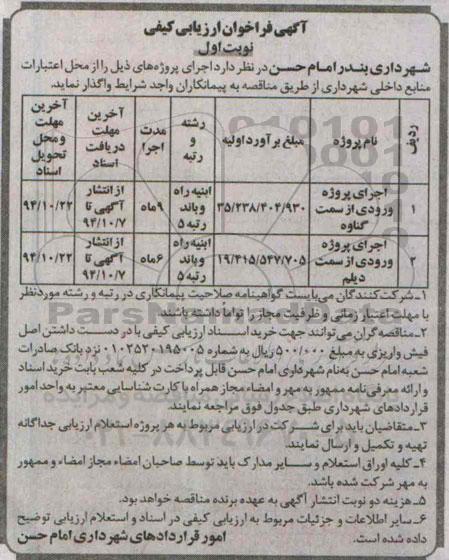 آگهی فراخوان ارزیابی کیفی
نوبت اول
شهرداری بندر امام حسن در نظر دارد اجرای پروژه‌های ذیل را از محل اعتبارات
منابع داخلی شهرداری از طریق مناقصه به پیمانکاران واجد شرایط واگذار نماید.
ردیف	نام پروژه	مبلغ برآورد اولیه	رشته و رتبه	مدت اجرا	آخرین مهلت دریافت اسناد	آخرین مهلت و محل تحویل اسناد
۱	اجرای پروژه ورودی از سمت گناوه	۳۵/۲۳۸/۴۰۴/۹۳۰	ابنیه راه و باند رتبه ۵	۹ ماه	از انتشار آگهی تا ۹۴/۱۰/۷	۹۴/۱۰/۲۲
۲	اجرای پروژه ورودی از سمت دیلم	۱۹/۴۱۵/۵۴۷/۷۰۵	ابنیه راه و باند رتبه ۵	۶ ماه	از انتشار آگهی تا ۹۴/۱۰/۷	۹۴/۱۰/۲۲
۱ـ شرکت‌کنندگان می‌بایست گواهینامه صلاحیت پیمانکاری در رتبه و رشته موردنظر
با مهلت اعتبار زمانی و ظرفیت مجاز را تواما داشته باشند.
۲ـ مناقصه‌گران می‌توانند جهت خرید اسناد ارزیابی کیفی با در دست داشتن اصل
فیش واریزی به مبلغ ۵۰۰/۰۰۰ ریال به شماره ۰۱۰۲۵۲۰۱۹۵۰۰۵ نزد بانک صادرات
شعبه امام حسن به‌نام شهرداری امام حسن قابل پرداخت در کلیه شعب بابت خرید اسناد
و ارائه معرفی‌نامه ممهور به مهر و امضاء مجاز همراه با کارت شناسایی معتبر به واحد امور
قراردادهای شهرداری طبق جدول فوق مراجعه نمایند.
۳ـ متقاضیان باید برای شرکت در ارزیابی مربوط به هر پروژه استعلام ارزیابی جداگانه
تهیه و تکمیل و ارسال نمایند.
۴ـ کلیه اوراق استعلام و سایر مدارک باید توسط صاحبان امضاء مجاز امضاء و ممهور
به مهر شرکت شده باشد.
۵ـ هزینه دو نوبت انتشار آگهی به عهده برنده مناقصه خواهد بود.
۶ـ سایر اطلاعات و جزئیات مربوط به ارزیابی کیفی در اسناد و استعلام ارزیابی توضیح
داده شده است.
امور قراردادهای شهرداری امام حسن